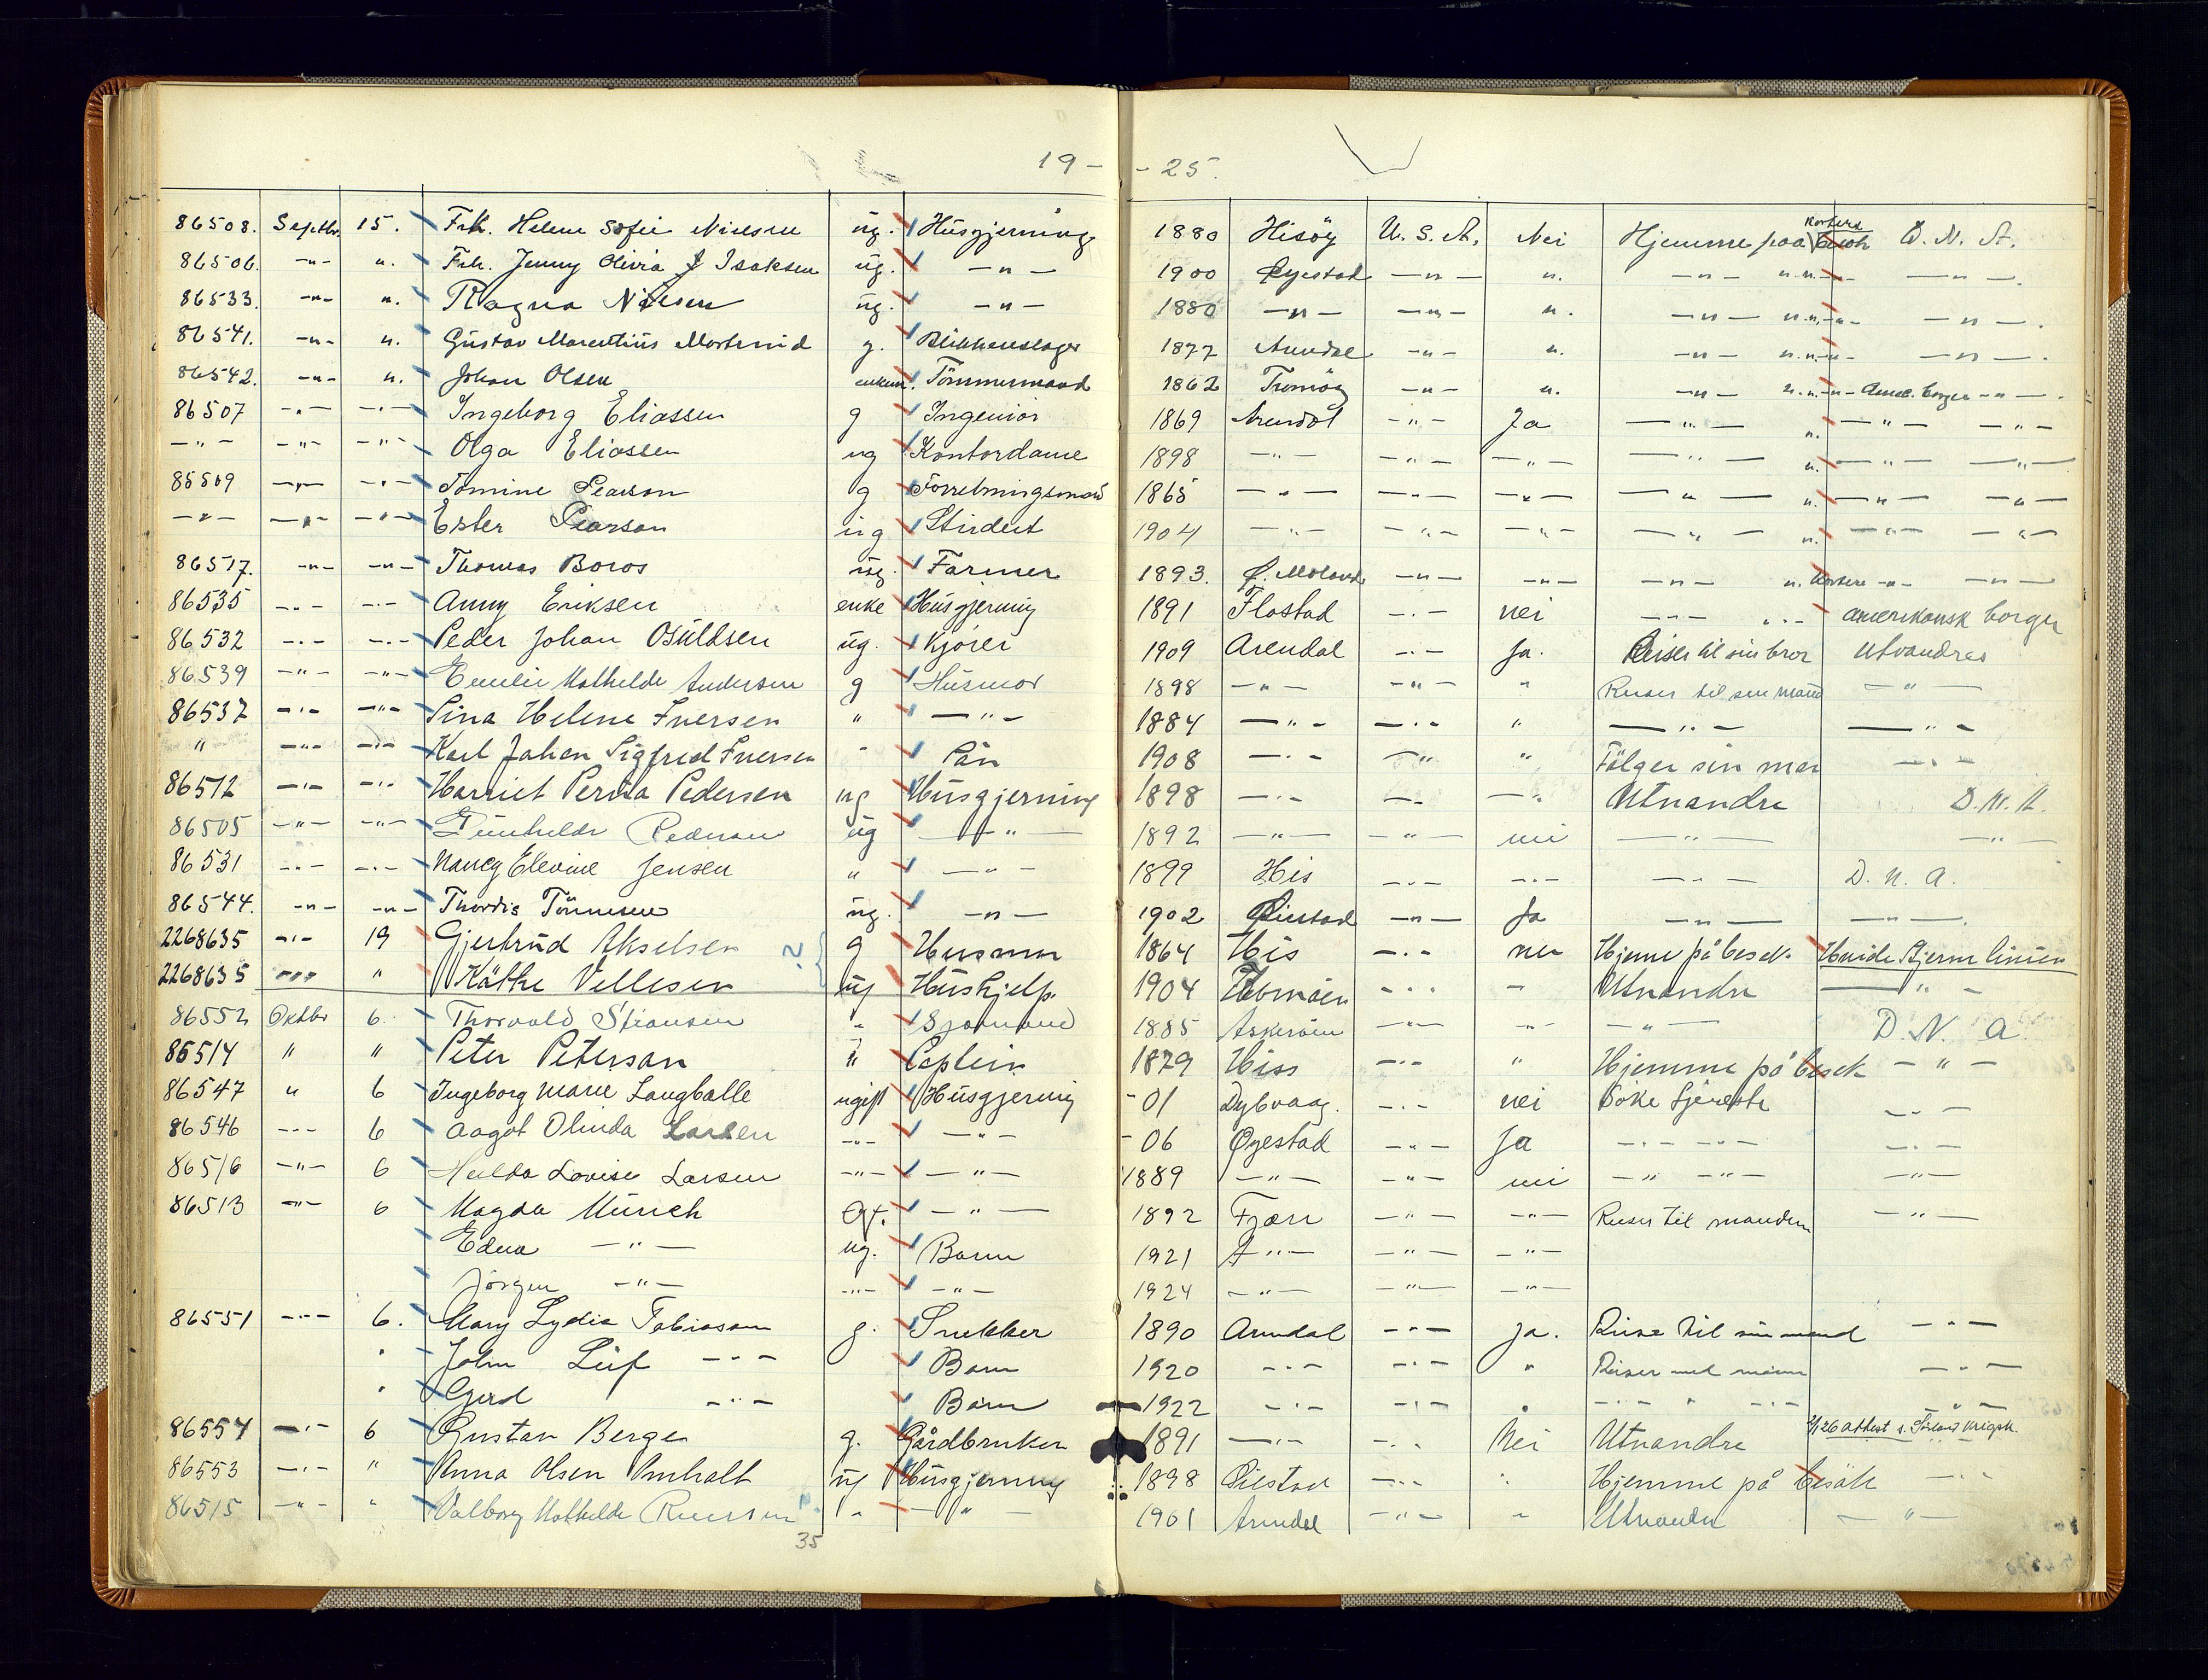 19 - - 25.
86508. Septbr. 15. Frk. Helene Sofie Nielsen ug. Husgjerning 1880 Hisöy U. S. A. Nei Hjemme paa besök kortere D. N. A.
86506. -"- ". Frk. Jenny Olivia J Isaksen ug. -"- 1900 Øyestad -"- ". -"- ".".- -"-.
86533. -"- ". Ragna Nilsen ug. -"- 1880 -"- -"- ". -"- ".".-"- -"-.
86541. -"- ". Gustav Marentius g. Blikkenslager 1877 Arendal -"- ". -"- ".".-"- -"-.
86542. -"- ". Johan Olsen enkem. Tömmermand 1862 Tromöy -"- ". -"- ".".-"- Amer. borger -"-.
86507 -"- -"- Ingeborg Eliassen g Ingeniör 1869 Arendal -"- Ja -"- ". -"- -"-
-"- -"- -"- Olga Eliassen ug Kontordame 1898 -"- -"- -"- -"- ". -"- -"-
85509 -"- -"- Tomine Pearson g Forretningsmand 1865 -"- -"- -"- -"- ". -"- -"-
-"- -"- -"- Ester Pearson ug Student 1904 -"- -"- -"- -"- ". -"- -"-
86517. -"- -"- Thomas Boros ug. Farmer 1893. Ø. Moland -"- -"- -"- ". kortere -"- -"-
86535 -"- -"- Anny Eriksen enke Husgjerning 1891 Flostad -"- nei -"- -"- amerikansk borger
86532 -"- -"- Peder Johan Osuldsen ug. Kjörer 1909 Arendal -"- Ja. Reiser til sin bror Utvandrer
86539 -"- -"- Emilie Mathilde Andersen g Husmor 1898 -"- -"- " Reiser til sin mand -"-
86537 -"- -"- Sina Helene Iversen " -"- 1884 -"- -"- " -"- -"-
" -"- -"- Karl Johan Sigfred Iversen " Sön 1908 -"- -"- " Fölger sin mor -"-
86512 -"- -"- Harriet Perna Pedersen ug Husgjerning 1898 -"- -"- -"- Utvandre D. N. A.
86505 -"- -"- Gunhilde Pedersen ug -"- 1892 -"- -"- nei -"- -"-
86531 -"- -"- Nancy Elevine Jensen " -"- 1899 His -"- -"- -"- D. N. A.
86544. -"- -"- Thordis Tönnesen ug. -"- 1902 Öiestad -"- Ja -"- -"-.
2268635 -"- 19 Gjertrud Akselsen g Husmor 1864 His -"- nei Hjeme på besek. Hvide Stjerne linien
2268635 -"- " Käthe Vellesen ug Hushjelp. 1904 Tromöen -"- - Utvandre -"-
86552 Oktbr 6. Thorvald Stiansen " Sjømand 1885 Askeröen -"- -"- -"- D. N. A.
86514 " " Peter Peterson " Captein 1879 Hiss -"- " Hjemme på besök -"-
86547 " 6 Ingeborg Marie Langballe ugift Husgjerning -01 Dybvaag. -"- nei Söke tjeneste -"-
86546 -"- 6 Aagot Olinda Larsen -"- -"- -06 Øyestad -"- Ja -"- -"- -"-
86516 -"- 6 Hulda Lovise Larsen -"- -"- 1889 -"- -"- nei -"- -"- -"-
86513 -"- 6 Magda Münich Gf. -"- 1892 Fjære -"- -"- Reiser til manden -"-
Edna -"- ug. Barn 1921 A"- -"- -"-
Jörgen -"- -"- -"- 1924 -"- -"- -"-
86551 -"- 6. Mary Lydia Tobiassen g. Snekker 1890 Arendal -"- ja. Reise til sin mand -"-
" John Leif -"- Barn 1920 -"- -"- " Reiser med moren -"-
" Gerd -"- Barn 1922 -"- -"- " -"- " -"- -"-
86554 -"- 6 Gustav Berge g. Gårdbruker 1891 -"- -"- Nei Utvandre 2/1 26 attest
86553 -"- " Anna Olsen Omholt ug Husgjerning 1898 Öiestad -"- " Hjemme på besök -"-
86515 -"- " Valborg Mathilde " -"- 1901 Arendal -"- " Utvandre -"-
35